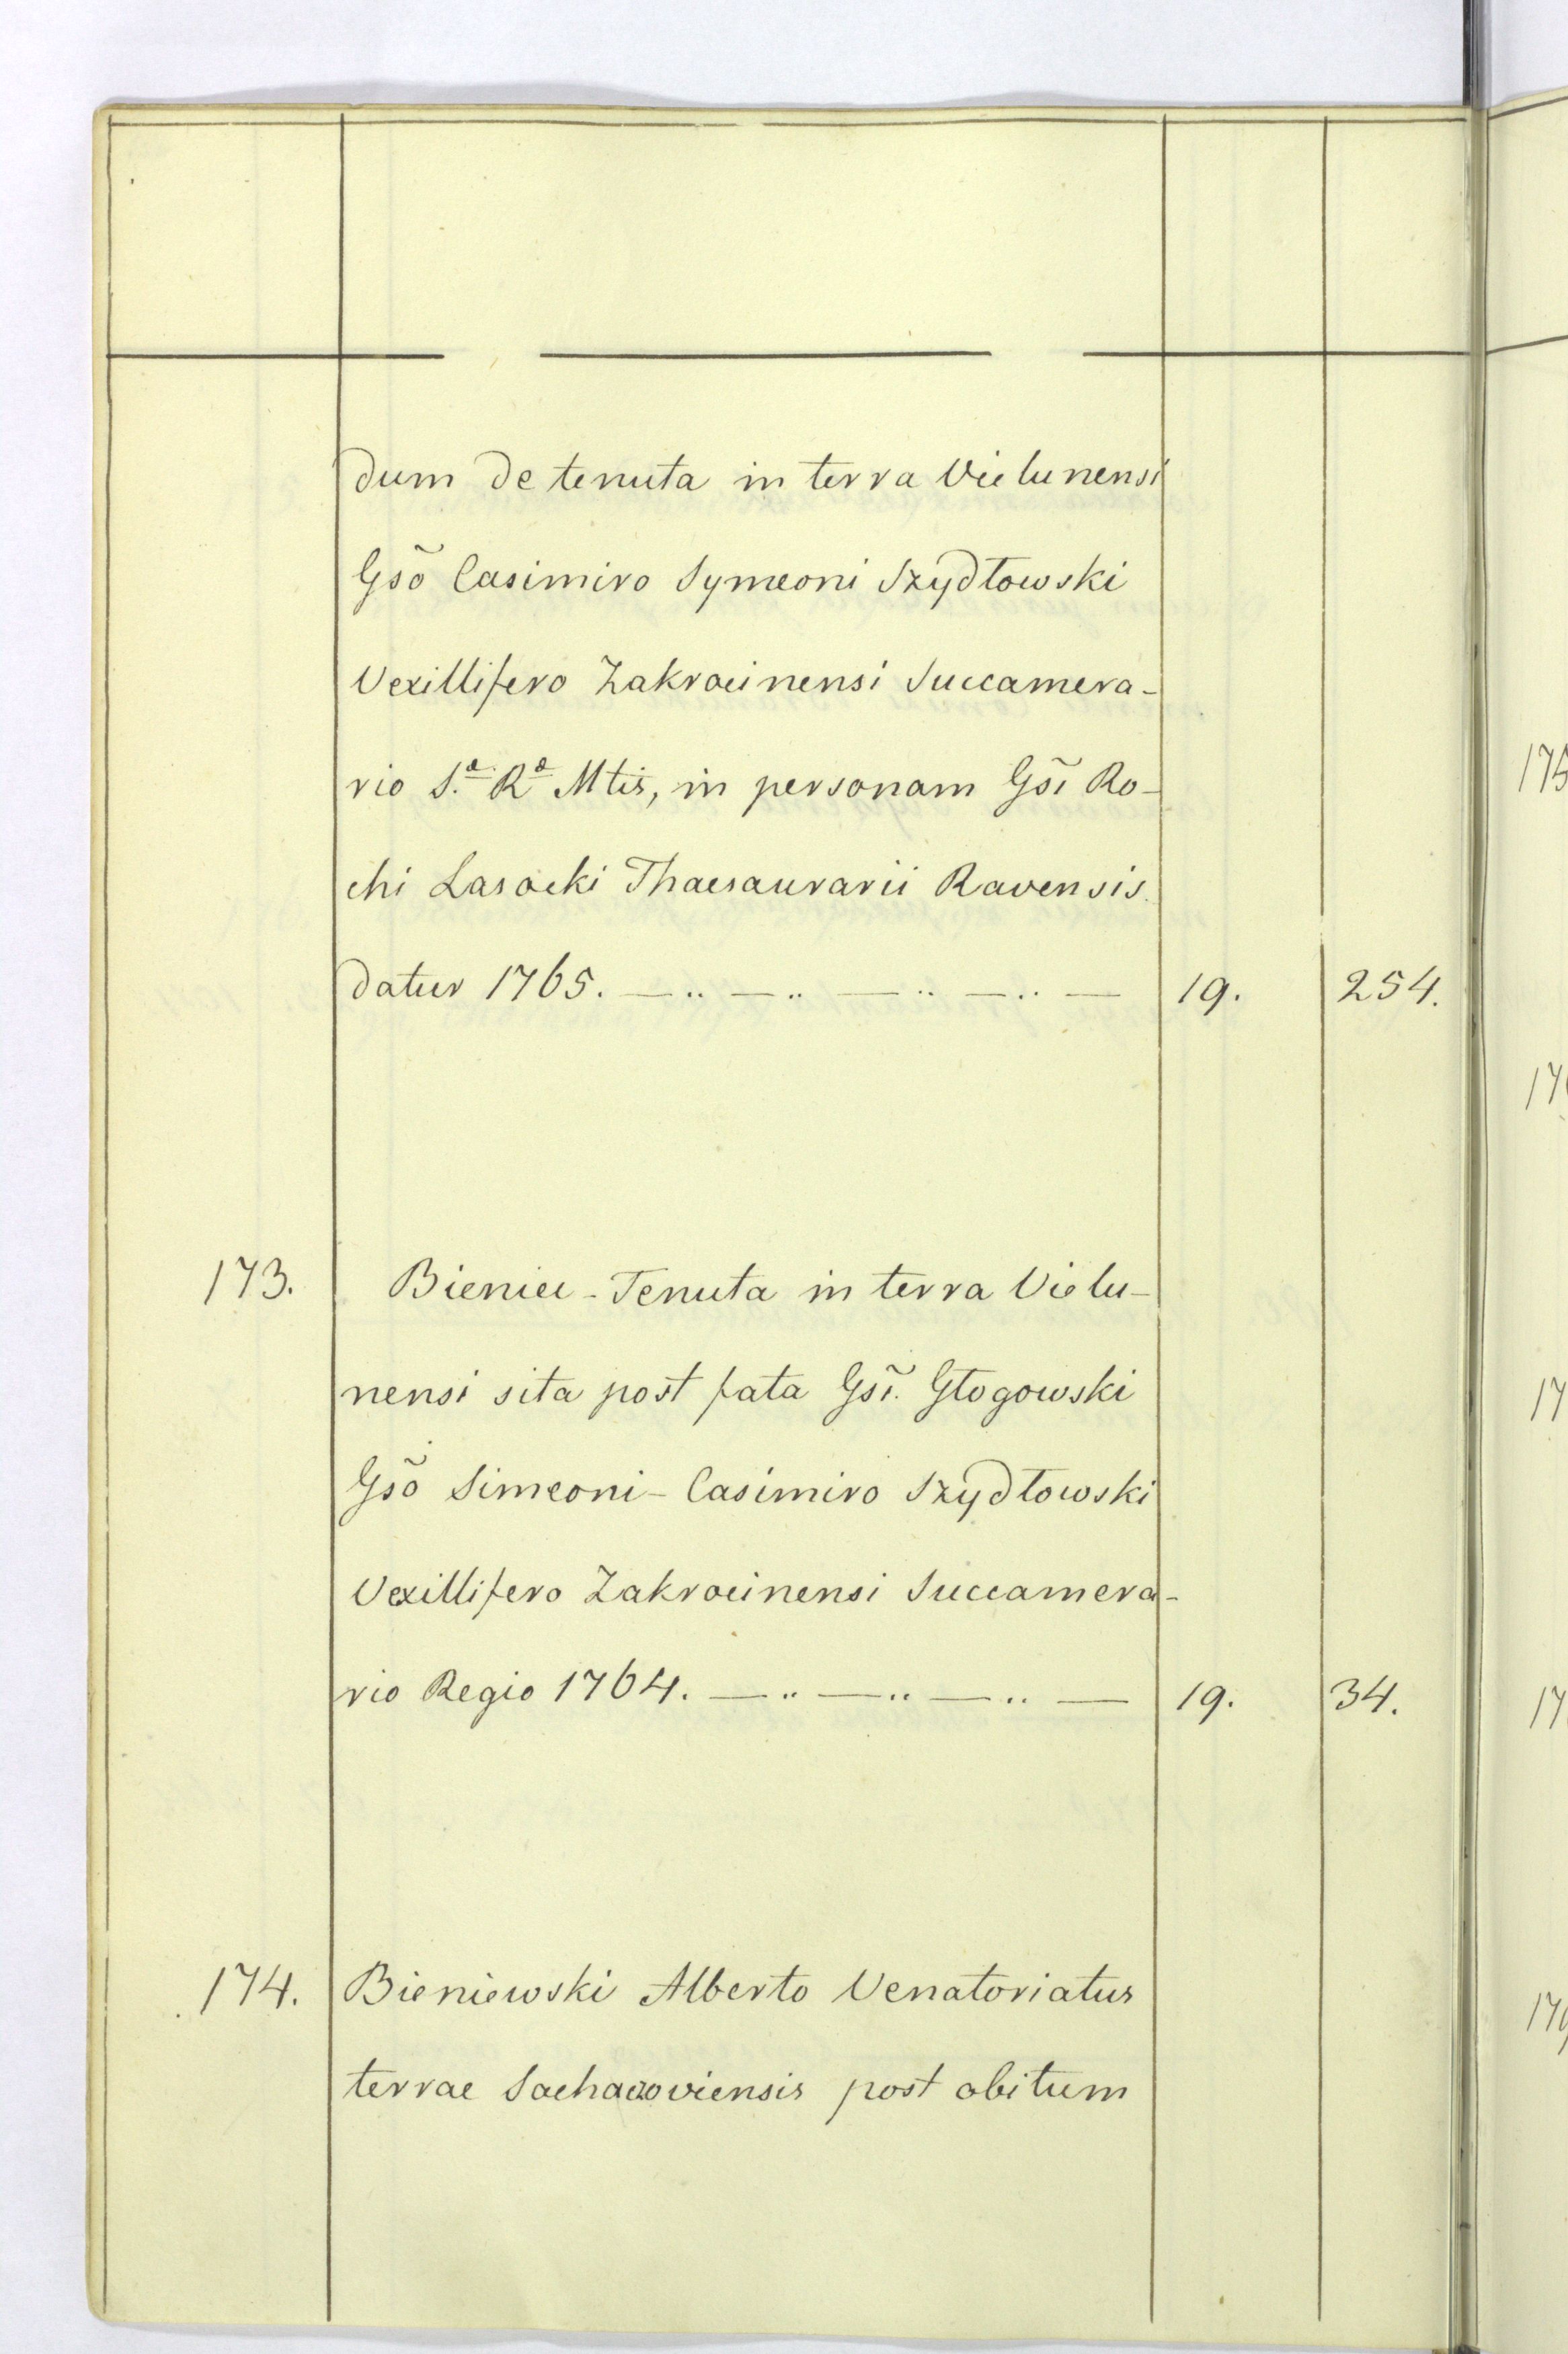 dum de tenuta in terra Vielunensi
Gsõ Casimiro Symeoni Szydłowski
Vexillifero Zakrocinensi Succamera-
rio S.ae Rae Mtis, in personam Gsĩ Ro-
chi Lasocki Thaesaurarii Ravensis
datur 1765. —..—..—..—..— 19. 254.
173. Bieniec - Tenuta in terra Vielu-
nensi sita post fata Gsĩ. Głogowski
Gsõ Simeoni - Casimiro Szydłowski
Vexillifero Zakrocinensi Succamera-
rio Regio 1764. —..—..—..— 19. 34.
174. Bieniewski Alberto Venatoriatus
terrae Sochaczoviensis post obitum